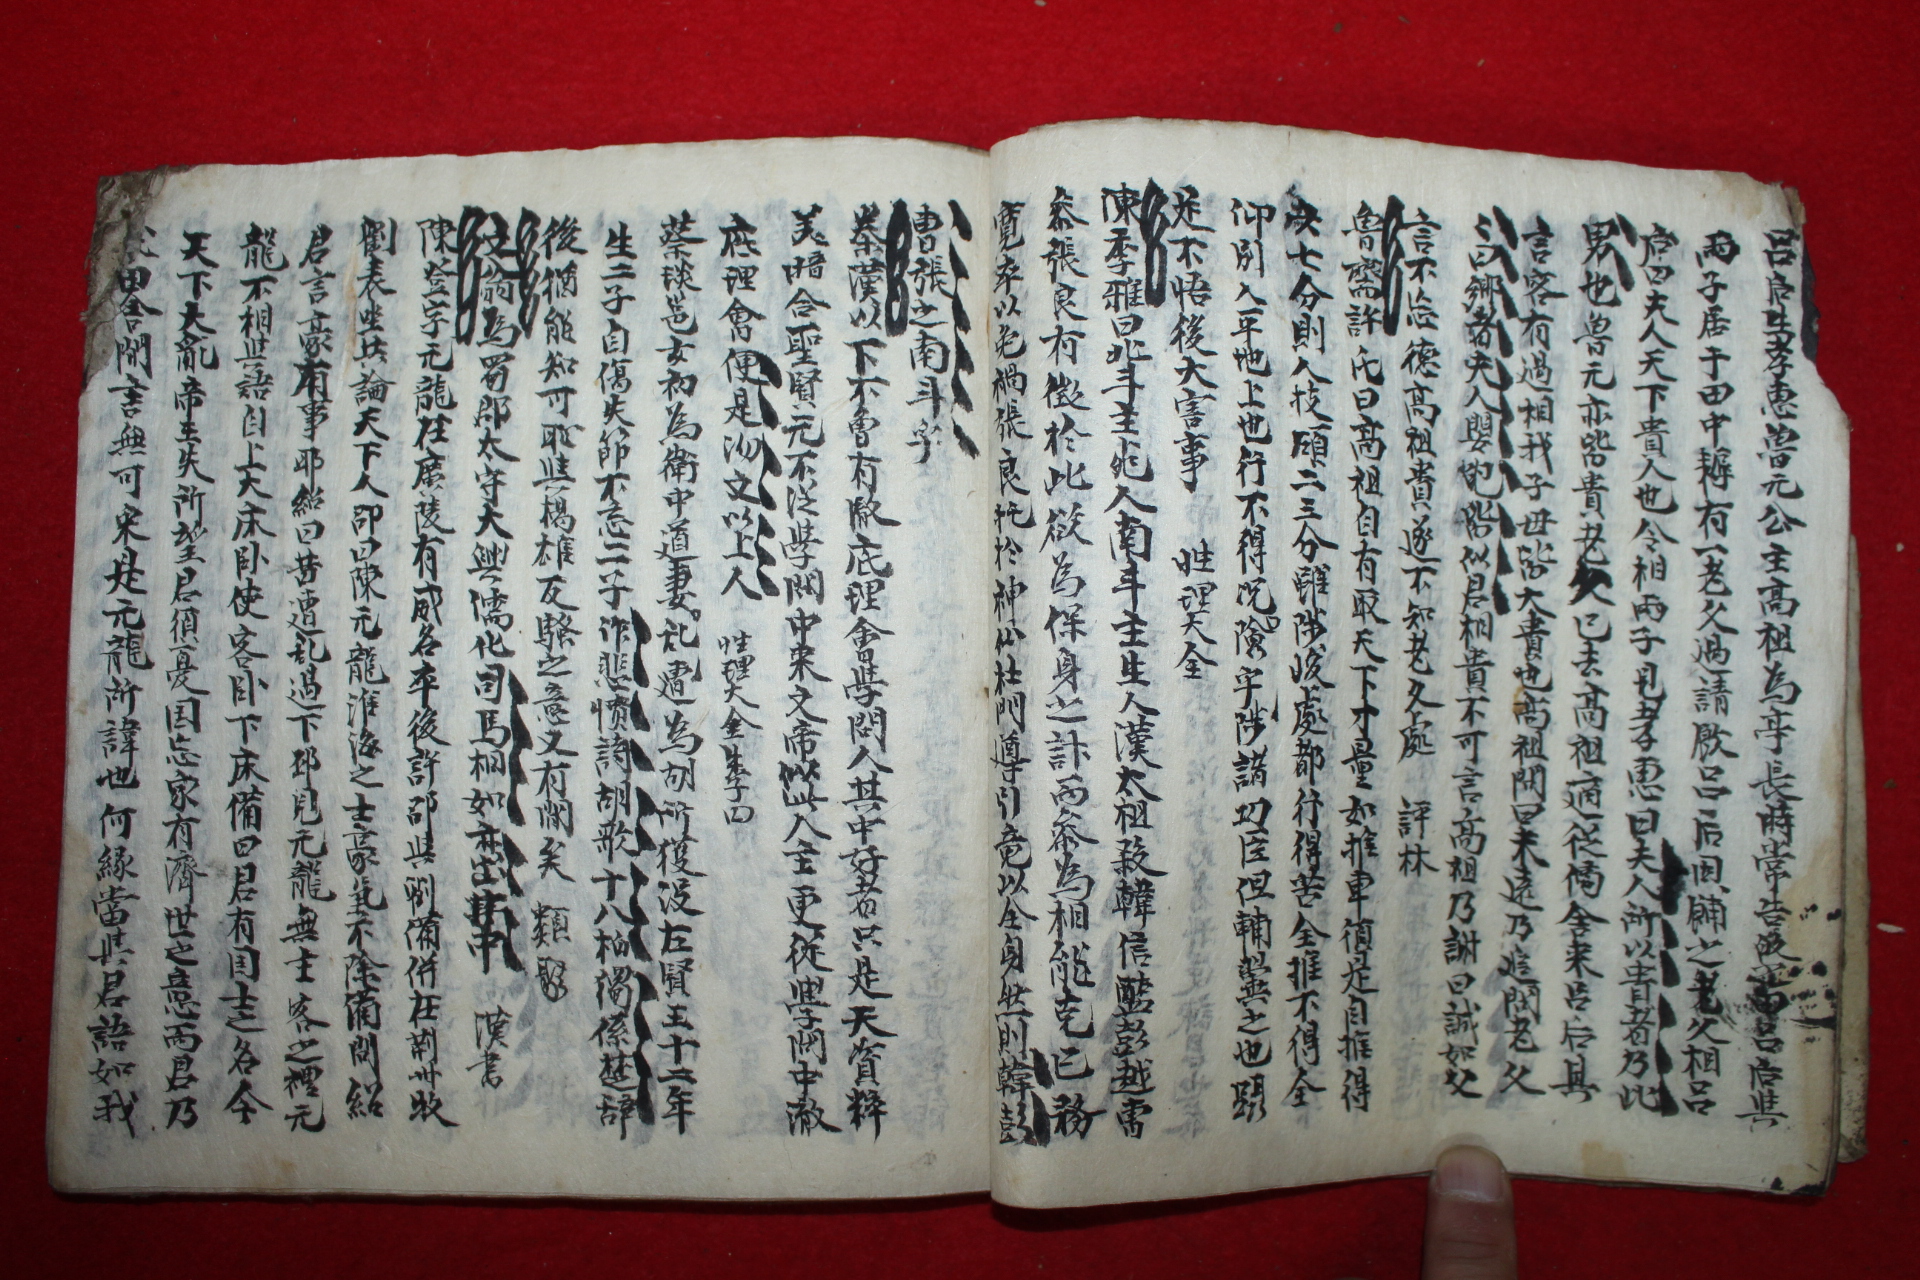 呂后生孝惠魯元公主高祖爲亭長時常告歸之田呂后與
兩子居于田中耨有一老父過請飮呂后因餔之老父相呂
后曰夫人天下貴人也令相兩子見孝惠曰夫人所以貴者乃此
男也魯元亦皆貴老父已去高祖適從傍舍來呂后具
言客有過相我子母皆大貴也高祖問曰未遠乃追問老父
曰鄕者夫人嬰兒皆似君相貴不可言高祖乃謝曰誠如父
言不忘德高祖貴遂不知老父處 評林
魯齋許氏曰高祖自有取天下才量如推車須是自推得
六七分則人扶頭二三分雖陟峻處都行得若全推不得全
仰別人平地上也行不得況險乎陟諸功臣但輔翼之也
是不悟後大害事 性理大全
陳季雅曰北斗主死人南斗主生人漢太祖殺韓信醢彭越
參張良有徵於此欲爲保身之計而參爲相能克已務
寬卒以免禍張良托於神仙杜門導引竟以全身然則韓彭
曹張之南斗乎
秦漢以下不曾有徹底理會學問人其中好者只是天資粹
美暗合聖賢元不從學問中來文帝以此人主更從學問中徹
底理會便是湯文以上人 性理大全朱子曰
蔡琰邕女初爲衛中道妻乱遭爲胡所獲沒左賢王十二年
生二子自傷失節不忘二子作悲憤詩胡歌十八拍獨係楚辭
後猶能知可耻與楊雄反騷之意又有間矣 類聚
文翁爲蜀郡太守大興儒化司馬相如亦出其中 漢書
陳登字元龍在廣陵有威名卒後許邵與劉備併在荊州牧
劉表坐共論天下人卲曰陳元龍淮海之士豪氣不除備問紹
君言豪有事耶紹曰昔遭乱過下邳見元龍無主客之禮元
龍不相與語自上大床臥使客臥下床備曰君有国士之名今
天下大亂帝王失所望君須憂国忘家有濟世之意而君乃
求田舍間言無可采是元龍所諱也何緣當與君語如我